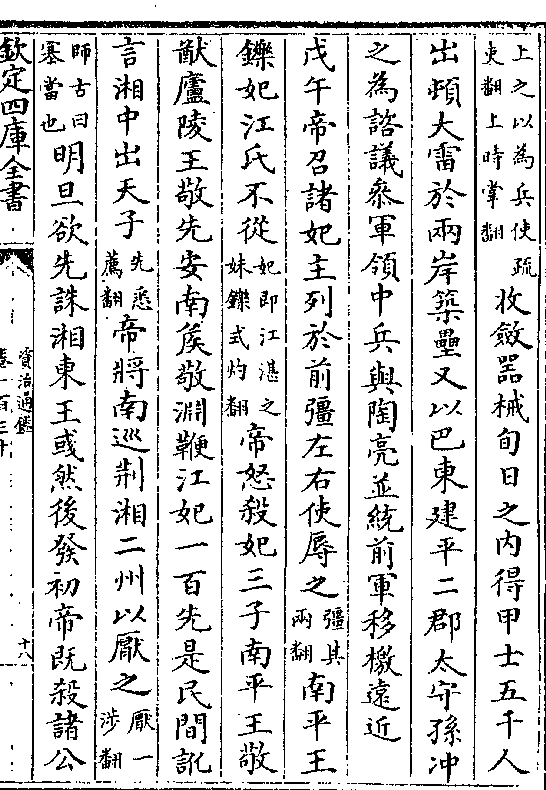 上之以為兵使疏
吏翻上時掌翻收斂器械旬日之内得甲士五千人
出頓大雷於兩岸築壘又以巴東建平二郡太守孫冲
之為諮議叅軍領中兵與陶亮並統前軍移檄遠近
戊午帝召諸妃主列於前彊左右使辱之彊其兩翻南平王
鑠妃江氏不從妃即江湛之妹鑠式灼翻帝怒殺妃三子南平王敬
猷廬陵王敬先安南矦敬淵鞭江妃一百先是民間訛
言湘中出天子先悉薦翻帝將南巡荆湘二州以厭之厭一涉翻
師古曰塞當也明旦欲先誅湘東王彧然後發初帝既殺諸公
欽定四庫全書
資治通鑑
卷一百三十
十八